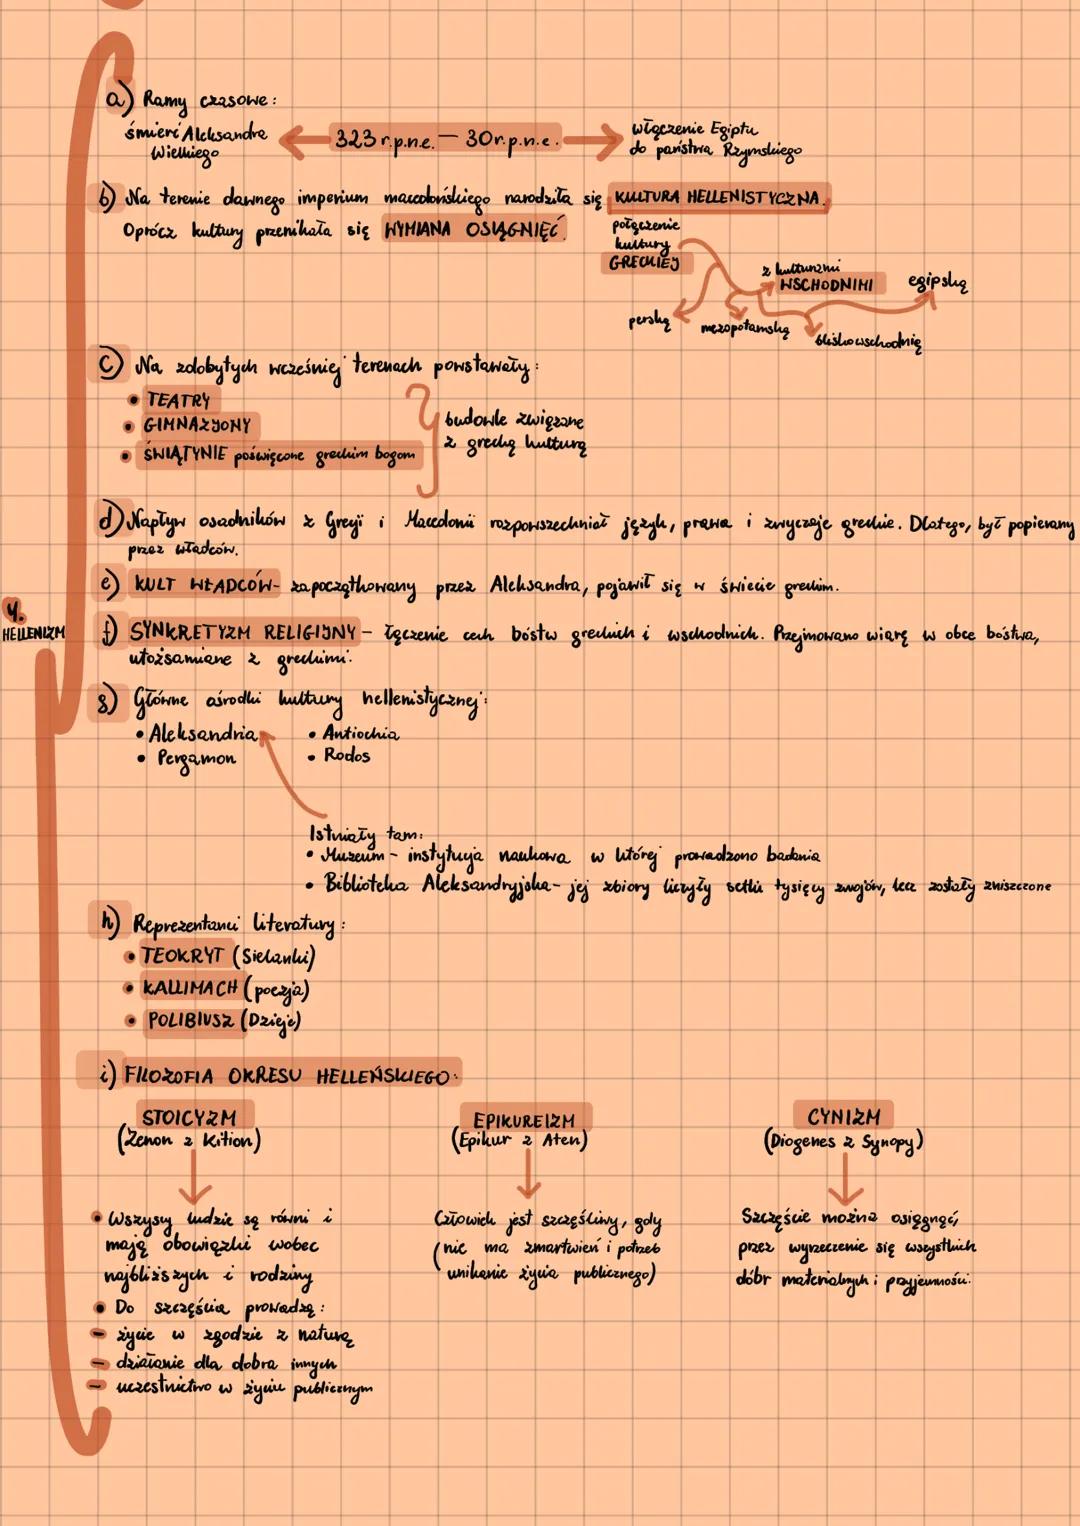 a) Ramy czasowe:
śmierć Aleksandra Wielkiego
323 r.p.n.e. — 30r.p.n.e.
włączenie Egiptu
do państwa Rzymskiego
b) Na terenie dawnego imperium macedońskiego narodziła się KULTURA HELLENISTYCZNA.
Oprócz kultury przenikała się WYMIANA OSIĄGNIĘĆ.
połączenie
kultury
GRECKIEJ
z kulturami
WSCHODNIMI
egipską
perską
mezopotamską
bliskowschodnią
c) Na zdobytych wcześniej terenach powstawały:
• TEATRY
• GIMNAZJONY
• ŚWIĄTYNIE poświęcone greckim bogom
budowle związane
z grecką kulturą
d) Napływ osadników z Grecji i Macedonii rozpowszechniał język, prawa i zwyczaje greckie. Dlatego, był popierany
przez władców.
e) KULT WŁADCÓW- zapoczątkowany przez Aleksandra, pojawił się w świecie greckim.
4.
HELLENIZM
f) SYNKRETYZM RELIGIJNY – łączenie cech bóstw greckich i wschodnich. Przejmowano wiarę w obce bóstwa,
utożsamiane z greckimi.
g) Główne ośrodki kultury hellenistycznej:
• Aleksandria
• Antiochia
• Pergamon
• Rodos
Istniały tam:
• Muzeum – instytucja naukowa w której prowadzono badania
• Biblioteka Aleksandryjska- jej zbiory liczyły setki tysięcy zwojów, lecz zostały zniszczone
h) Reprezentanci literatury:
• TEOKRYT (Sielanki)
• KALLIMACH (poezja)
• POLIBIUSZ (Dzieje)
i) FILOZOFIA OKRESU HELLEŃSKIEGO:
STOICYZM
(Zenon z Kition)
• Wszyscy ludzie są równi i
mają obowiązki wobec
najbliższych i rodziny
• Do szczęścia prowadzą:
– życie w zgodzie z naturą
– działanie dla dobra innych
– uczestnictwo w życiu publicznym
EPIKUREIZM
(Epikur z Aten)
Człowiek jest szczęśliwy, gdy
(nic ma zmartwień i potrzeb
unikanie życia publicznego)
CYNIZM
(Diogenes z Synopy)
Szczęście można osiągnąć,
przez wyrzeczenie się wszystkich
dóbr materialnych i przyjemności.